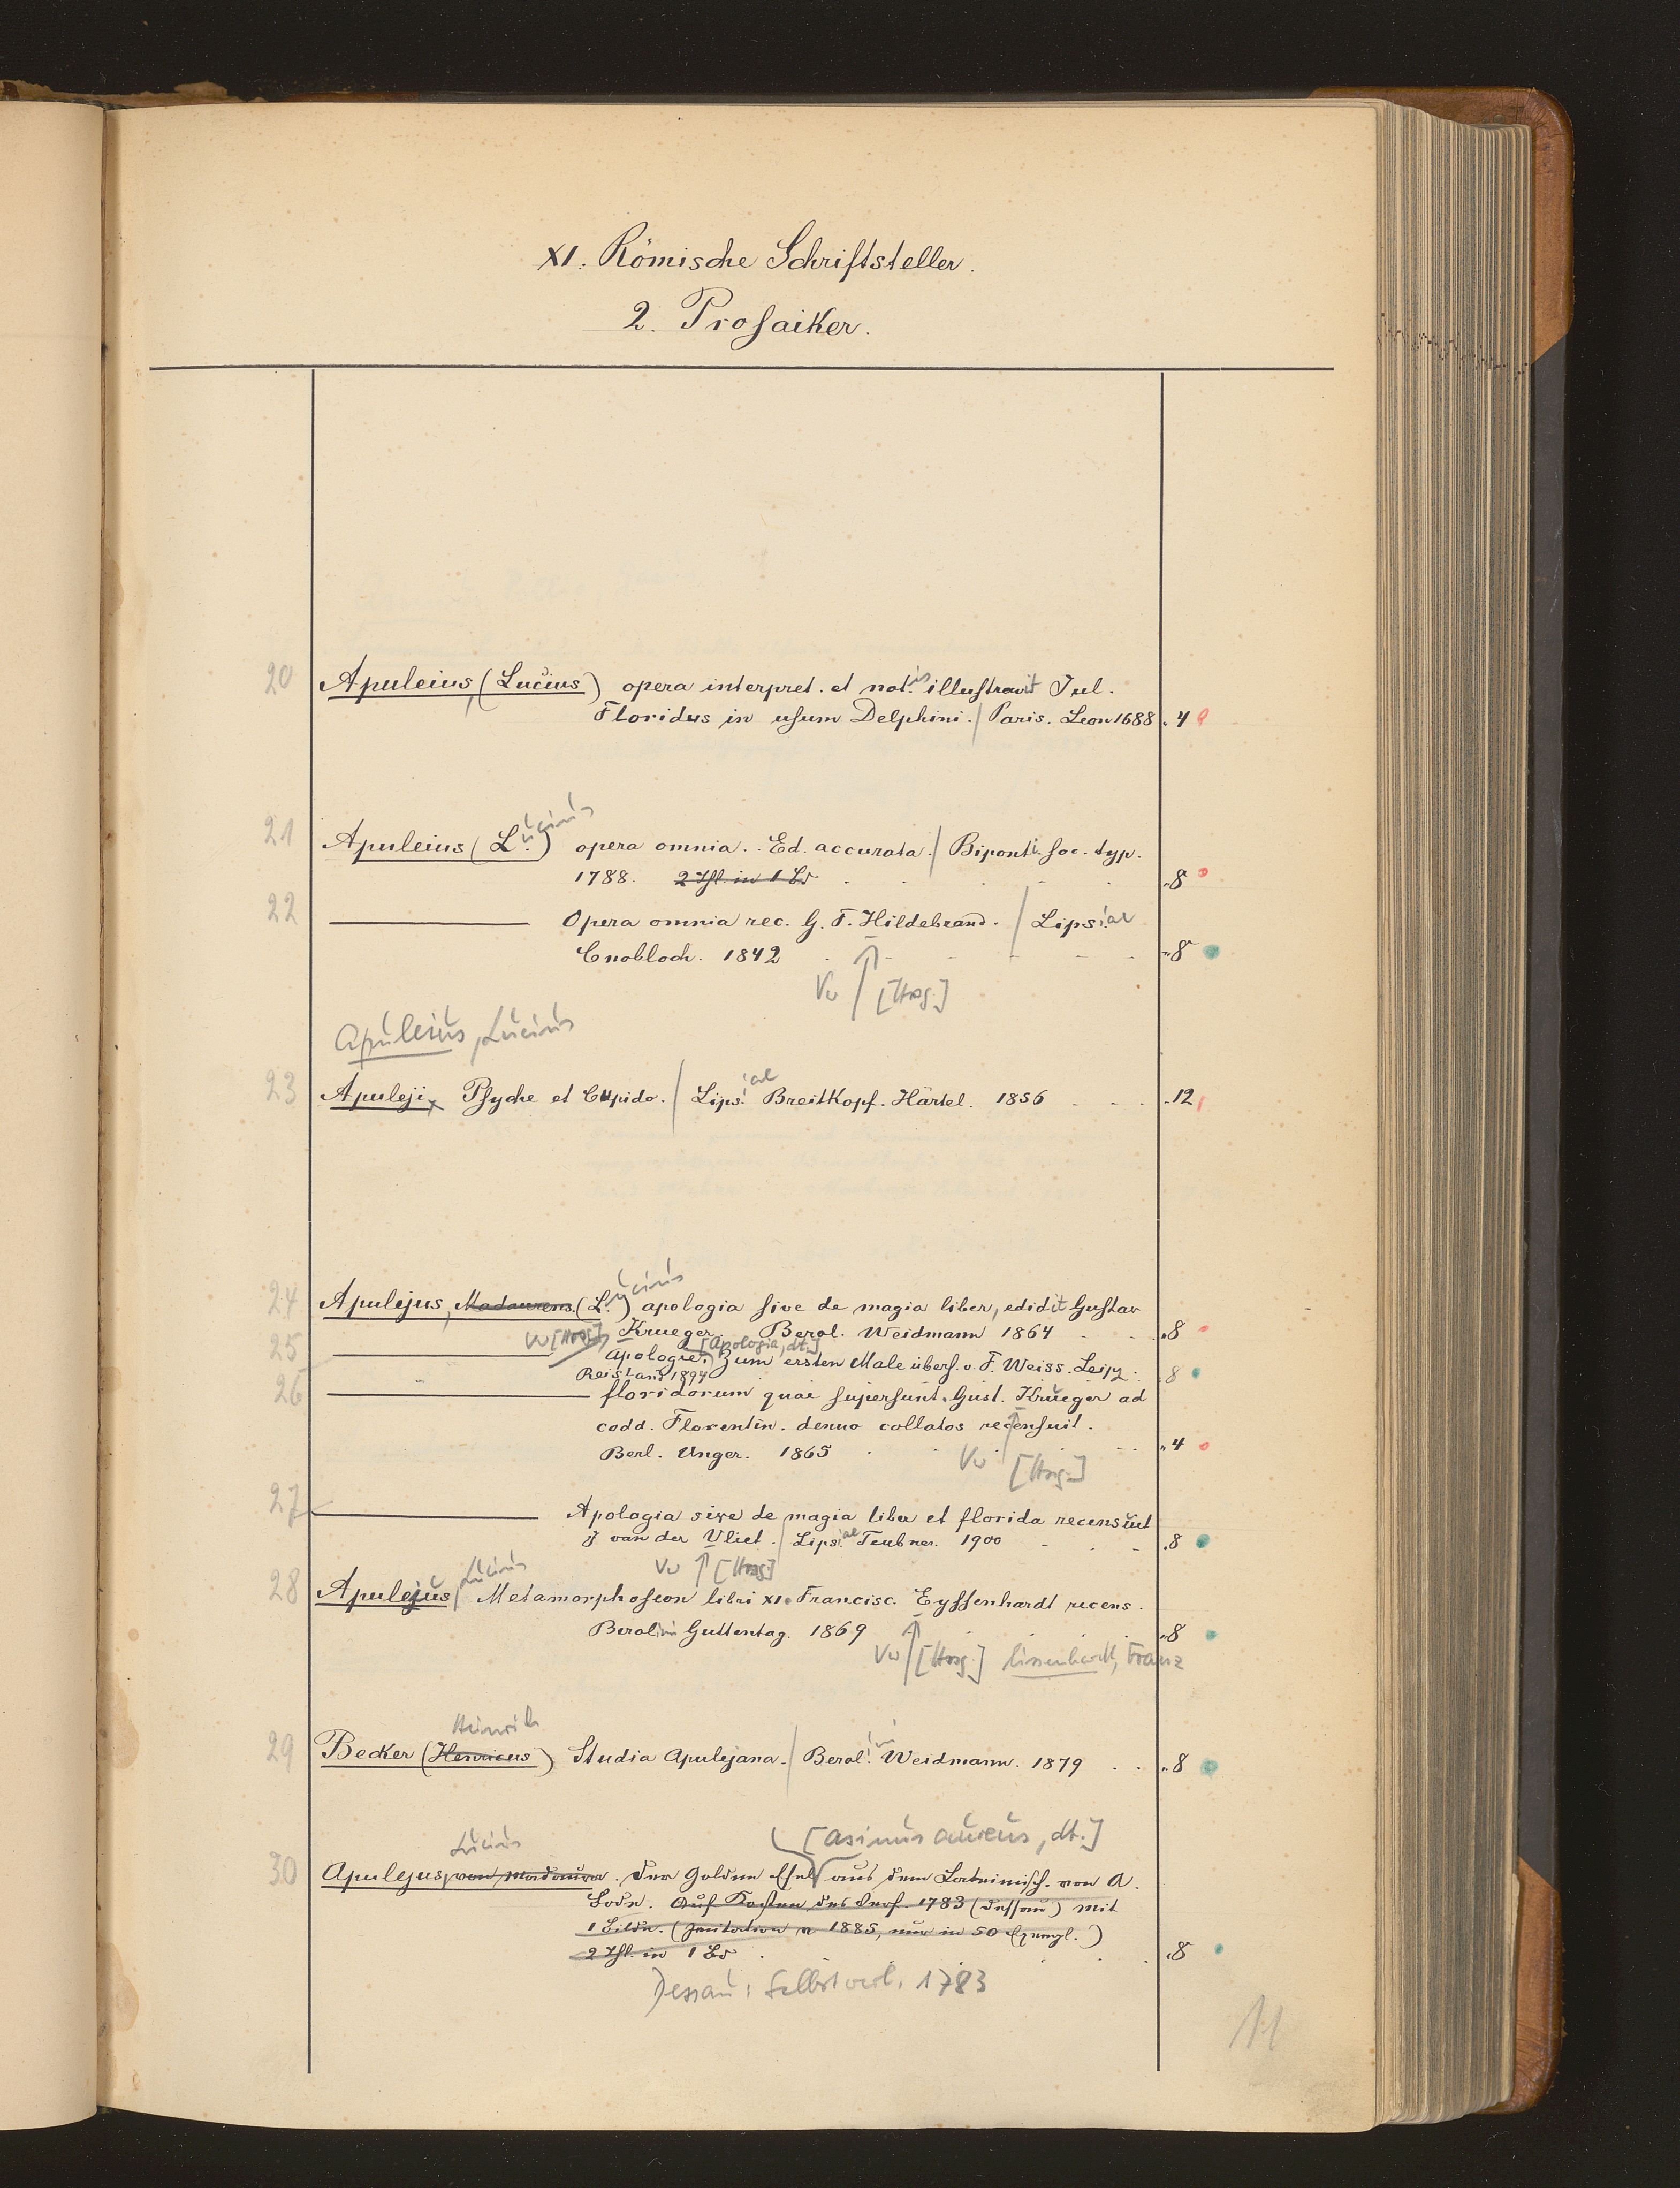 XI. Römische Schriftsteller.
2. Prosaiker.
20 Apuleius, (Lucius) opera interpret. et not.is illustravit Jul.
Floridus in usum Delphini. / Paris. Leon 1688 . 4
21 Apuleius (L.ucius) opera omnia. Ed. accurata. / Biponti Soc. typ.
1788. 2 Thl. in 1 Bd . 8
22 Opera omnia rec. G. F. Hildebrand. / Lipsiae
Cnobloch. 1842 8
Vw [Hrsg.]
Apuleius, Lucius
23 Apuleji, Psyche et Cupido. / Lips.iae Breitkopf. Härtel. 1856 . 12
24 Apulejus, Madaurens. (L.ucius) apologia sive de magia liber, edidit Gustav
Krueger. Berol. Weidmann 1864 . 8
Vw [Hrsg.]
25 Apologie. [Apologia, dt.] Zum ersten Male übers. v. F. Weiss. Leipz.
Reisland 1894 8
26 floridorum quae supersunt. Gust. Krueger ad
codd. Florentin. denuo collatos recensuit.
Berl. Unger. 1865 . 4
Vw [Hrsg.]
27 Apologia sive de magia liber et florida recensuit
J van der Vliet. / Lipsiae Teubner. 1900 . 8
Vw [Hrsg.]
28 Apulejus, Lucius Metamorphoseon libri XI. Francisc. Eyssenhardt recens.
Berolini Guttentag. 1869 8
Vw [Hrsg.] Eissenhardt, Franz
Heinrich
29 Becker (Henricus) Studia Apulejana. / Berol.ini Weidmann. 1879 . 8
Lucius [asinus aureus, dt.]
30 Apulejus, von Madaura. Der Goldene Esel aus dem Lateinisch. von A.
Rode. Auf Kosten des Verf. 1783 (Dessau) mit
1 Bildn. (Imitation v 1885, nur in 50 Exempl.)
2 Thl. in 1 Bd . 8
Dessau: Selbstverl. 1783
11